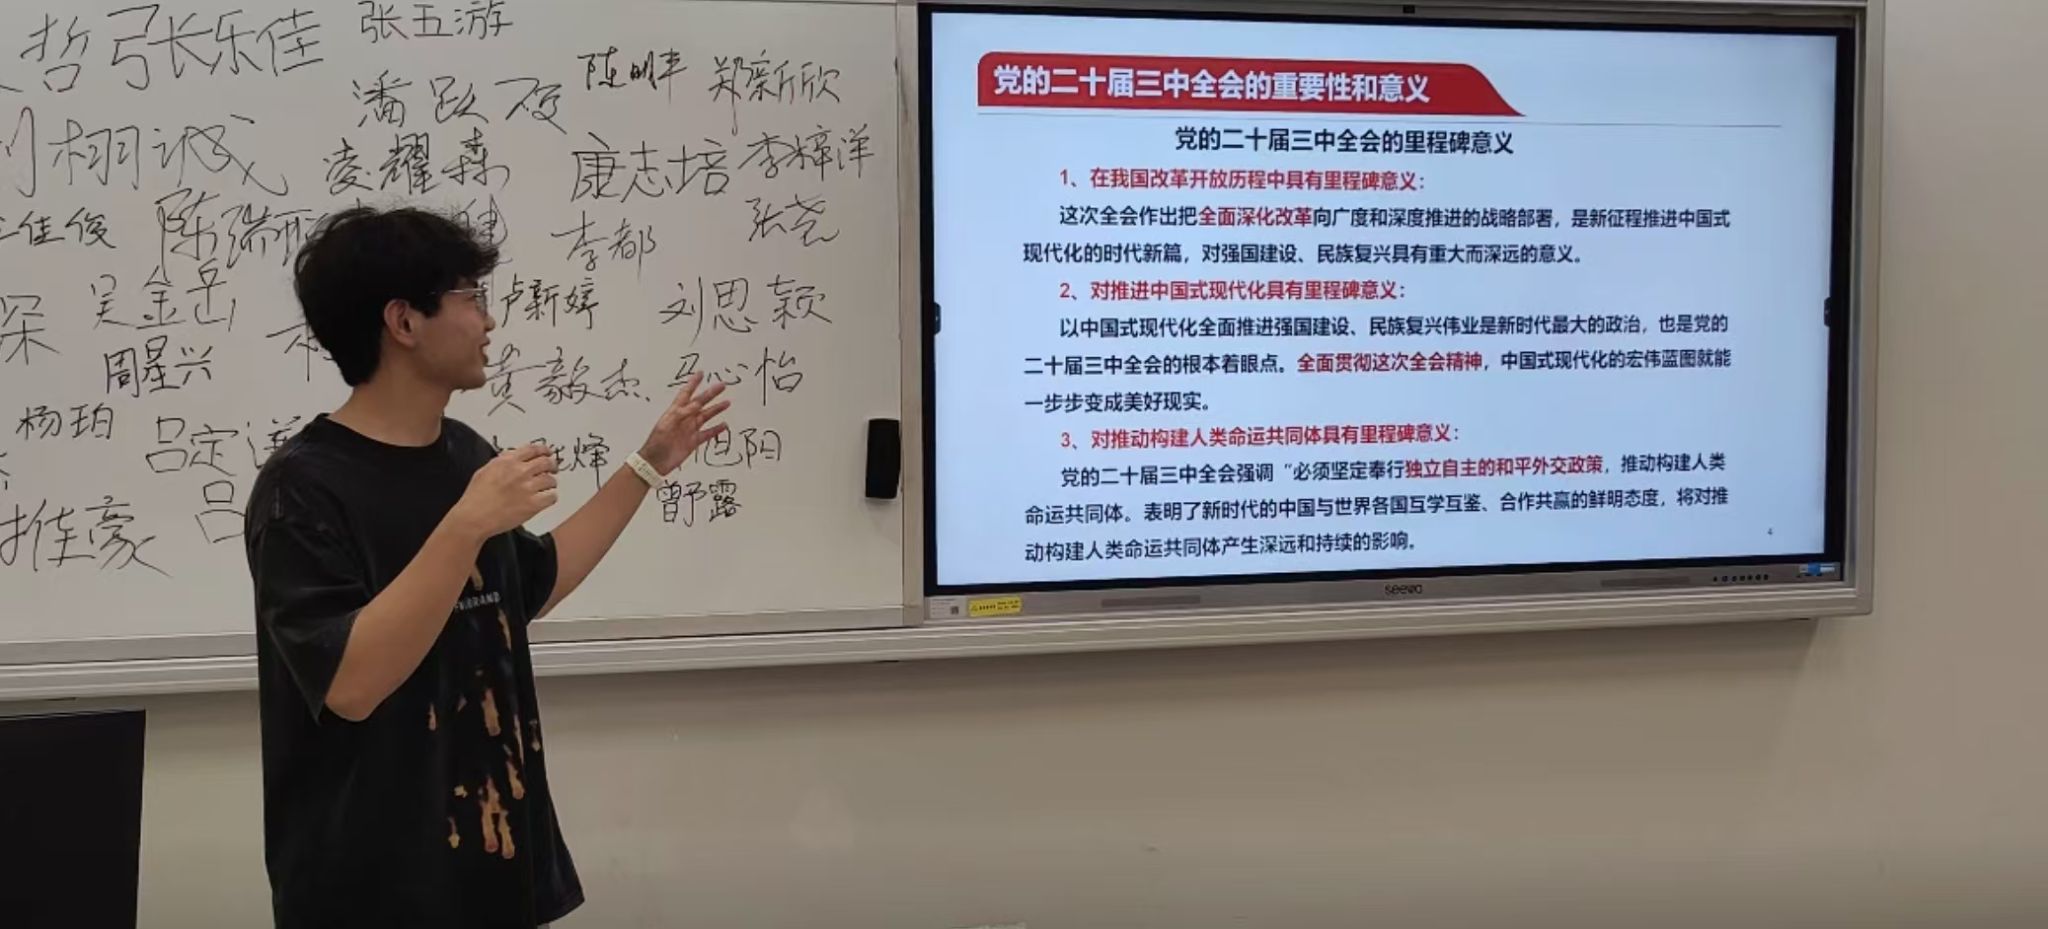 哲 张乐佳 张五游
潘跃 陈明丰 郑新欣
栩诚 凌耀森 康志培 李梓洋
佳俊 陈瑞 李都 张尧
深 吴金岳 卢新婷 刘思颖
周星兴 黄毅杰 马心怡
杨珀 吕定 烽 旭阳
佳豪 吕 曾予露
党的二十届三中全会的重要性和意义
党的二十届三中全会的里程碑意义
1、在我国改革开放历程中具有里程碑意义：
这次全会作出把全面深化改革向广度和深度推进的战略部署，是新征程推进中国式
现代化的时代新篇，对强国建设、民族复兴具有重大而深远的意义。
2、对推进中国式现代化具有里程碑意义：
以中国式现代化全面推进强国建设、民族复兴伟业是新时代最大的政治，也是党的
二十届三中全会的根本着眼点。全面贯彻这次全会精神，中国式现代化的宏伟蓝图就能
一步步变成美好现实。
3、对推动构建人类命运共同体具有里程碑意义：
党的二十届三中全会强调“必须坚定奉行独立自主的和平外交政策，推动构建人类
命运共同体。表明了新时代的中国与世界各国互学互鉴、合作共赢的鲜明态度，将对推
动构建人类命运共同体产生深远和持续的影响。
4
seewo